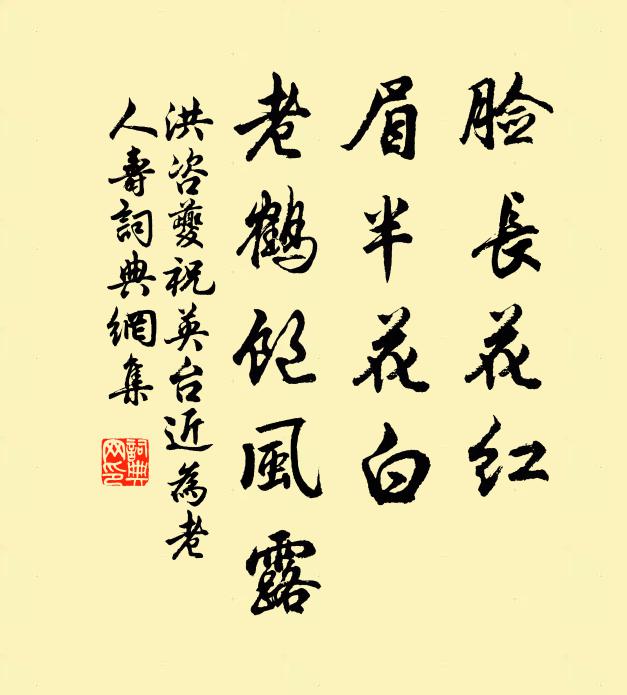 脸長花红
眉半花白
老鶴飽風露
洪咨夔祝英台近為老
人壽詞典網集
詞典
网印